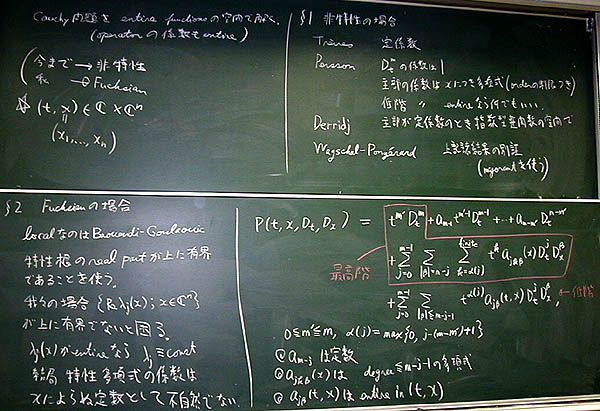 Cauchy 問題を entire functions の空間で解く.
(operator の係数も entire)
今まで → 非特性
私 → Fuchsian
(t, x) ∈ ℂ × ℂⁿ
(x₁, ..., xₙ)
§1 非特性の場合
Trèves 定係数
Persson Dₜᵐ の係数は 1
主部の係数は x につき多項式 (order の制限つき)
低階 〃 entire なら何でもいい.
Derridj 主部が定係数のとき指数型整函数の空間で
Wagschel-Pongérard 上記諸結果の別証
(majorant を使う)
§2 Fuchsian の場合
local なのは Baouendi-Goulaouic
特性根の real part が上に有界
であることを使う.
我々の場合 {Re λⱼ(x); x ∈ ℂⁿ}
が上に有界でないと困る.
λⱼ(x) が entire なら λⱼ ≡ const
結局 特性多項式の係数は
x によらぬ定数として不自然でない
P(t, x, Dₜ, Dₓ) = tᵐ′ Dₜᵐ + aₘ₋₁ tᵐ′⁻¹ Dₜᵐ⁻¹ + ... + aₘ₋ₘ′ Dₜᵐ⁻ᵐ′
最高階 + Σ_{j=0}^{m-1} Σ_{|β|=m-j} Σ_{k=α(j)}^{finite} tᵏ a_{jkβ}(x) Dₜʲ Dₓᵝ
+ Σ_{j=0}^{m-1} Σ_{|β|≦m-j-1} t^{α(j)} a_{jβ}(t, x) Dₜʲ Dₓᵝ, ← 低階
0 ≦ m′ ≦ m, α(j) = max{0, j-(m-m′)+1}
aₘ₋ⱼ は定数
a_{jkβ}(x) は degree ≦ m-j-1 の多項式
a_{jβ}(t, x) は entire in (t, x)